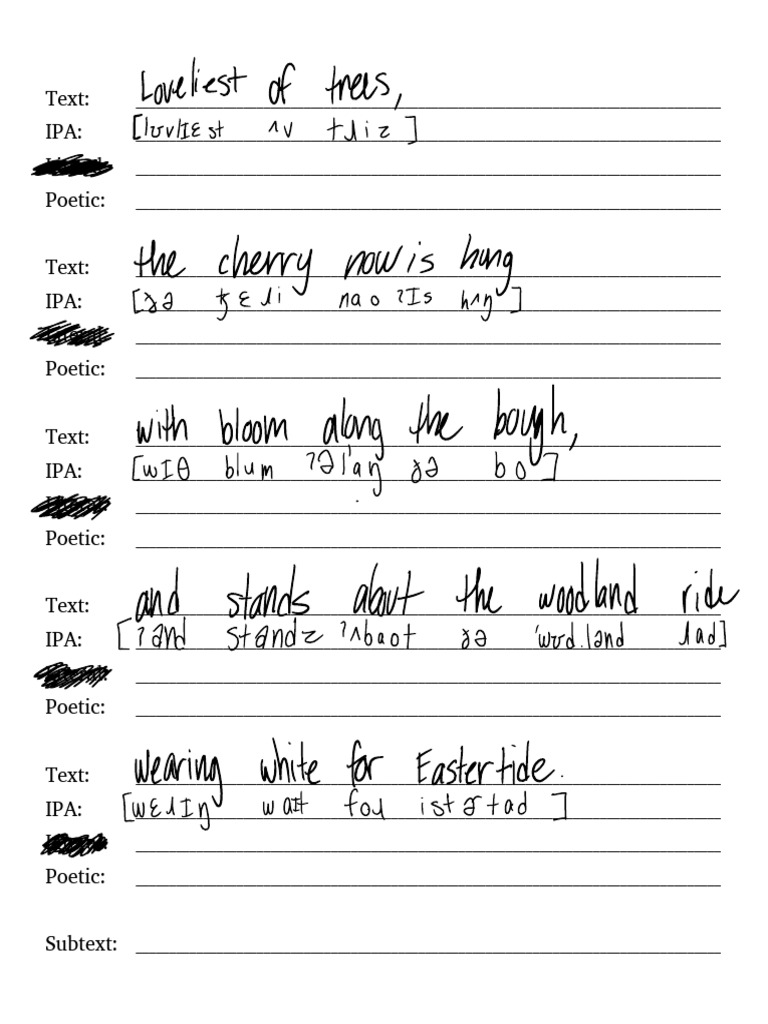 Text: Loveliest of trees,
IPA: [lʊvlIɛst ʌv tɹiz]
Poetic:
Text: the cherry now is hung
IPA: [ðə ʧɛɹi nao ʔIs hʌŋ]
Poetic:
Text: with bloom along the bough,
IPA: [wIθ blum ʔəl'aŋ ðə bo]
Poetic:
Text: and stands about the woodland ride
IPA: [ʔand standz ʔʌbaot ðə 'wʊd.lənd ɹad]
Poetic:
Text: wearing white for Eastertide.
IPA: [wɛɹIŋ waIt foɹ istɚtad]
Poetic:
Subtext: